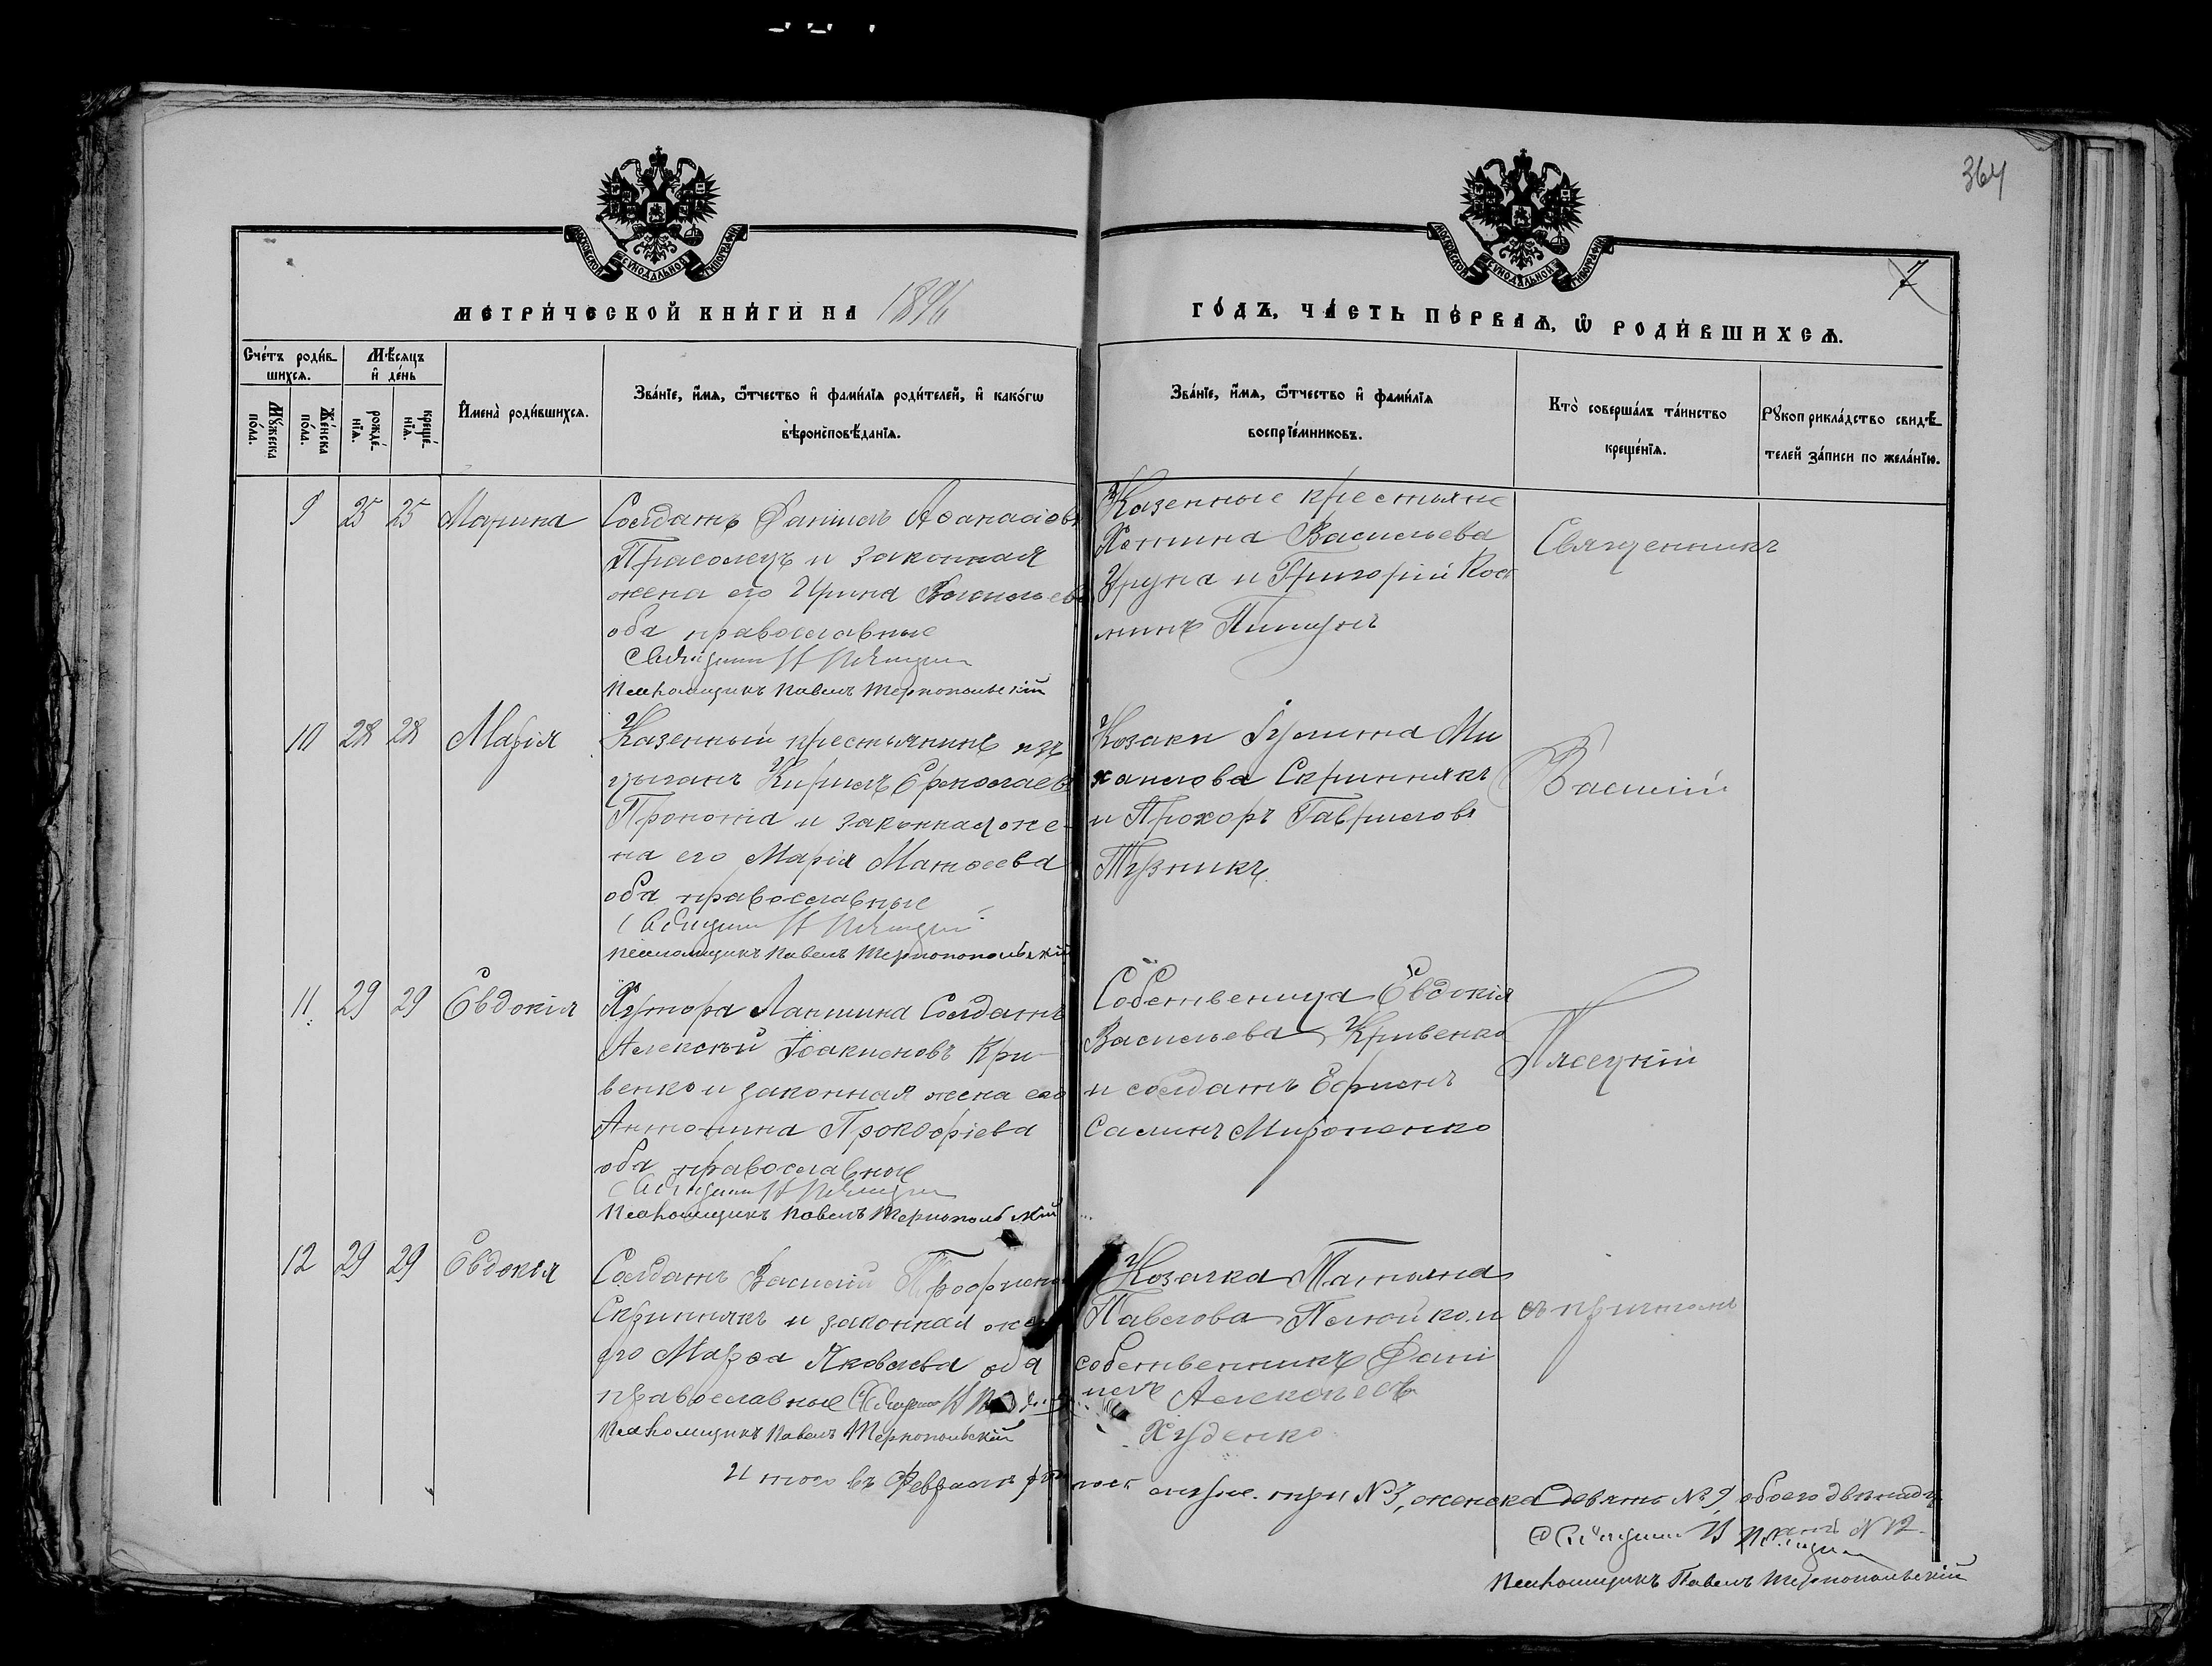 364
МОСКОВСКОЙ СУНОДАЛЬНОЙ ТИПОГРАФІИ
МОСКОВСКОЙ СУНОДАЛЬНОЙ ТИПОГРАФІИ
7
МЕТРИЧЕСКОЙ КНИГИ НА 1896
ГОДЪ, ЧАСТЬ ПЕРВАЯ, Ѡ РОДИВШИХСЯ.
Счетъ родившихся.
Мѣсяцъ и день
Мужеска пола.
Женска пола.
рожденія.
крещенія.
Имена родившихся.
Званіе, имя, ѿчество и фамилія родителей, и какогѡ
вѣроисповѣданія.
Званіе, имя, ѿчество и фамилія
воспріемниковъ.
Кто совершалъ таинство
крещенія.
Рукоприкладство свидѣ-
телей записи по желанію.
9 25 25 Марина
Солдатъ Даніилъ Аѳанасіовъ
Прасолецъ и законная
жена его Ирина Васильева
оба православные
Псаломщикъ Павелъ Тернопольскій
Казенные крестьяне
Васильева
и Григорій Кос
минъ
Священникъ
10 28 28 Марія
Казенный крестьянинъ изъ
цыганъ Кирилъ Ермолаевъ
и законная же-
на его Марія Матѳеева
оба православные
Псаломщикъ Павелъ Тернопольскій
Козаки Іулита Ми
хаилова Скринникъ
и Прохоръ Гавриловъ
Тузникъ
Василій
11 29 29 Евдокія
Хутора Лантина Солдатъ
Алексѣй Іоакимовъ Кри-
венко и законная жена его
Антонина Прокофіева
оба православные
Псаломщикъ Павелъ Тернопольскій
Собственица Евдокія
Васильева Кривенко
и солдатъ Ефримъ
Мироненко
Пясецкій
12 29 29 Евдокія
Солдатъ Василій Трофимовъ
Скринникъ и законная жена
его Марѳа Яковлева оба
православные
Псаломщикъ Павелъ Тернопольскій
Козачка Татьяна
Павлова и
собственникъ Дані
илъ Алексѣевъ
Худенко
съ причтомъ
Итого въ Февралѣ
три №3, женска девять №9, обоего двѣнадц
№12.
Псаломщикъ Павелъ Тернопольскій